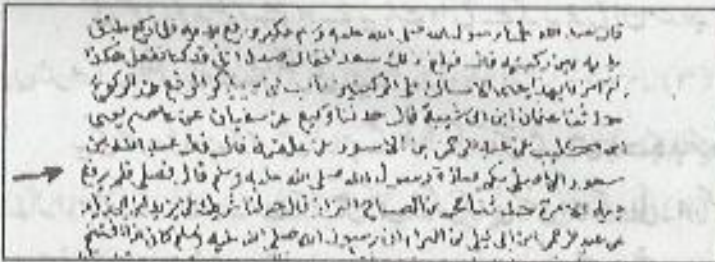 قال عبد الله علمنا رسول الله صلى الله عليه وسلم فكبر ورفع يديه فلما ركع طبق
يديه بين ركبتيه قال فبلغ ذلك سعدا فقال صدق اخي قد كنا نفعل هكذا
ثم امرنا بهذا يعني الامساك على الركبتين باب من لم يذكر الرفع عند الركوع
حدثنا عثمان ابن ابي شيبة قال حدثنا وكيع عن سفيان عن عاصم يعني
ابن كليب عن عبد الرحمن بن الاسود عن علقمة قال قال عبد الله بن
مسعود الا اصلي بكم صلاة رسول الله صلى الله عليه وسلم قال فصلى فلم يرفع
يديه الا مرة حدثنا محمد بن الصباح البزاز قال حدثنا شريك عن يزيد بن ابي زياد
عن عبد الرحمن ابن ابي ليلى عن البراء ان رسول الله صلى الله عليه وسلم كان اذا افتتح